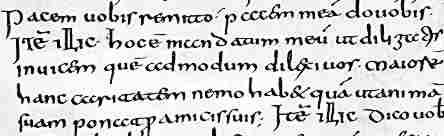 Pacem uobis remitto· pacem meā do uobis·
Itē illic· hoc ē mandatum meū ut diligatis
inuicem quē admodum dilexi uos· maiorē
hanc caritatem nemo hab& quā ut animā
suam ponat p amicis suis· Itē illic dico uob